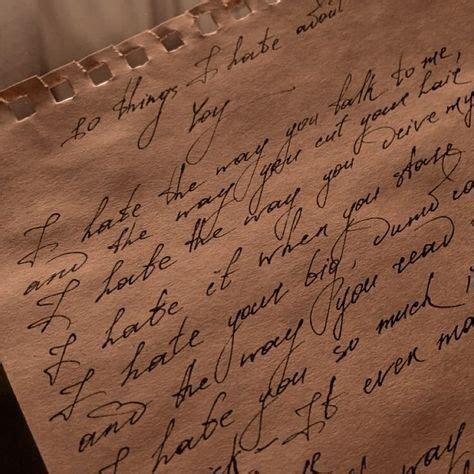 10 things I hate about
You
I hate the way you talk to me,
and the way you cut your hair
I hate the way you drive my
I hate it when you stare
I hate your big, dumb co
and the way you read
I hate you so much ,
It even ma
way